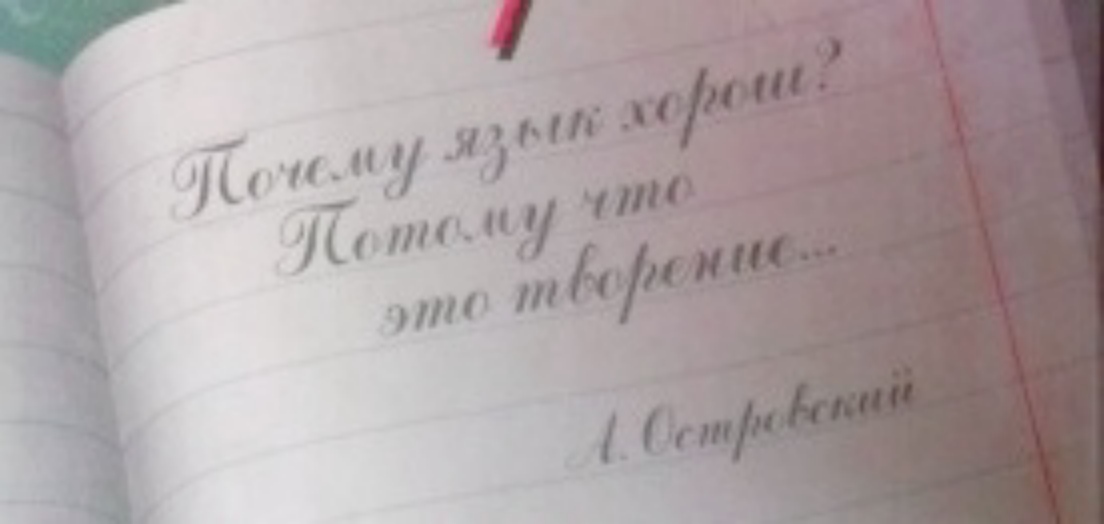 Почему язык хорош?
Потому что
это творение...
А. Островский